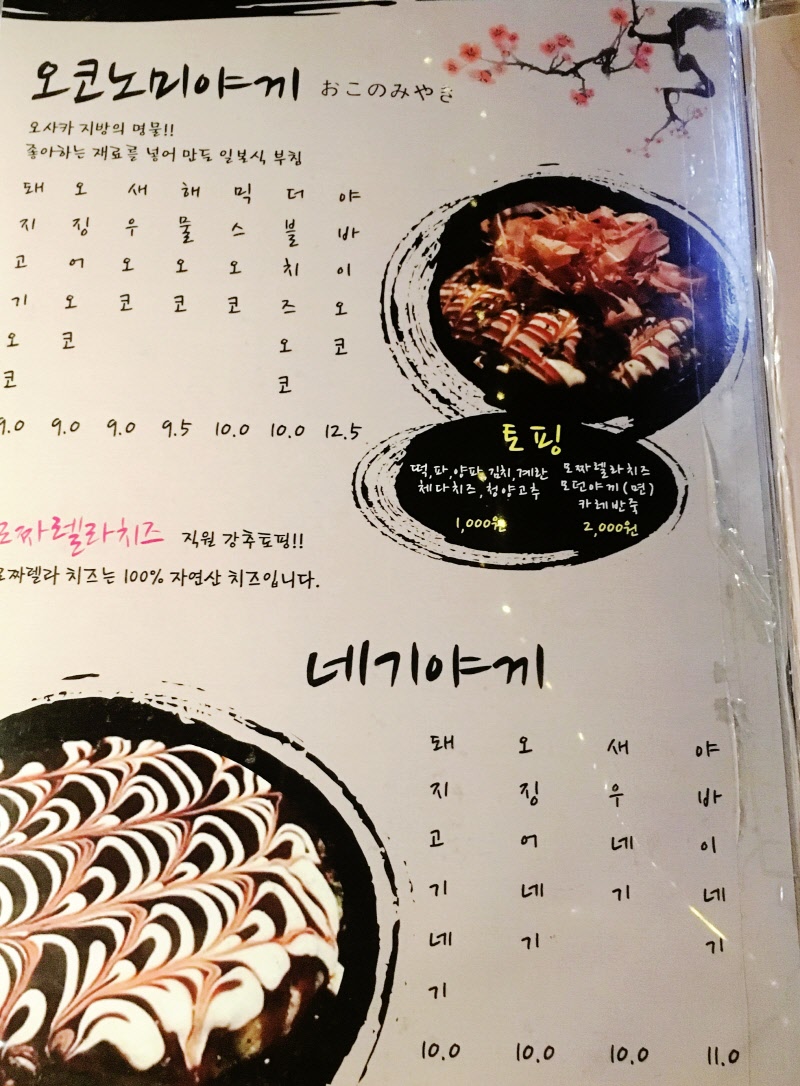 오코노미야끼 おこのみやき
오사카 지방의 명물!!
좋아하는 재료를 넣어 만든 일본식 부침
돼지고기오코 9.0
오징어오코 9.0
새우오코 9.0
해물오코 9.5
믹스오코 10.0
더블치즈오코 10.0
야바이오코 12.5
토핑
떡,파,양파,김치,계란
체다치즈,청양고추
1,000원
모짜렐라치즈
모던야끼(면)
카레반죽
2,000원
모짜렐라치즈 직원 강추토핑!!
모짜렐라 치즈는 100% 자연산 치즈입니다.
네기야끼
돼지고기네기 10.0
오징어네기 10.0
새우네기 10.0
야바이네기 11.0